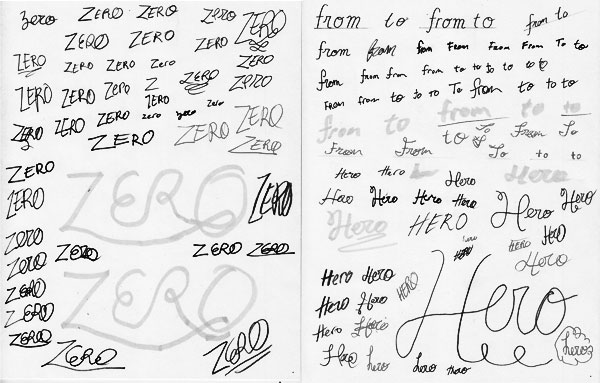 zero ZERO ZERO zero ZERO
ZERO ZERO ZERO
ZERO ZERO ZERO Zero ZERO ZERO
ZERO ZERO Zero Z ZERO Zero
ZERO
ZERO ZERO ZERO zero zero zero ZERO
ZERO ZERO ZERO
ZERO
ZERO ZERO
ZERO
zero
zero ZERO ZERO ZERO
ZERO
ZERO
ZERO
ZERO ZERO ZERO
from to from to from to
from from from From From From To to
from from from from to to to to to to
from from to to to To from to to to
from to from to to
From From to To From To
To to to
Hero Hero Hero Hero
Hero Hero Hero Hero Hero Hero
Hero HERO Hero HERO Hero
Hero Hero HERO Hero
Hero Hero
Hero Hero
Hero hero hero hero